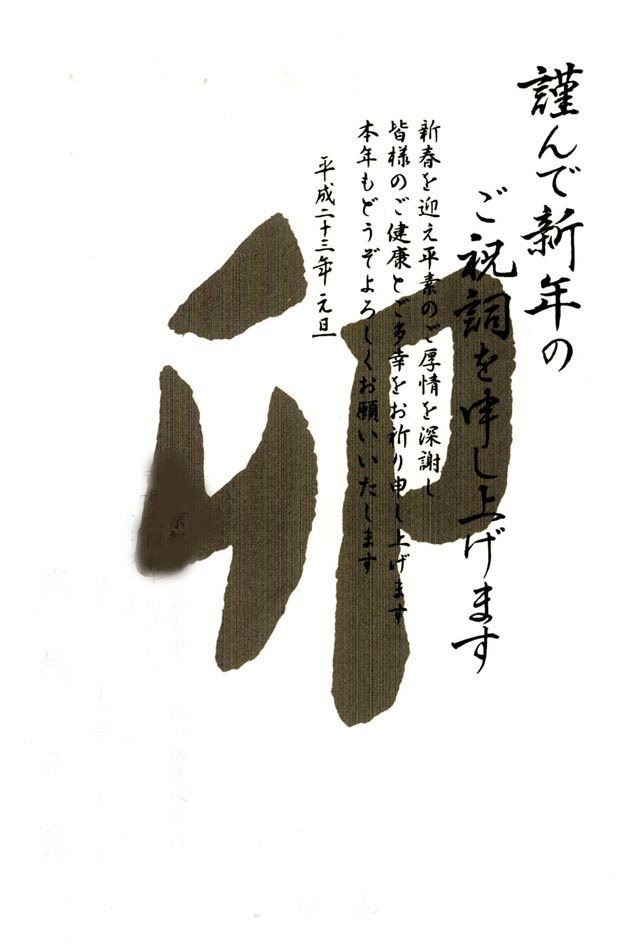 謹んで新年の
ご祝詞を申し上げます
新春を迎え平素のご厚情を深謝し
皆様のご健康とご多幸をお祈り申し上げます
本年もどうぞよろしくお願いいたします
平成二十三年 元旦
卯